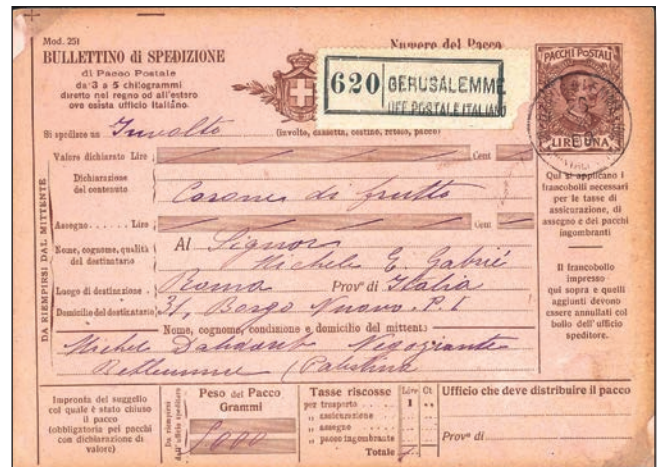 Mod. 251
BULLETTINO di SPEDIZIONE
di Pacco Postale
da 3 a 5 chilogrammi
diretto nel regno od all'estero
ove esista ufficio italiano.
Numero del Pacco
620 GERUSALEMME
UFF. POSTALE ITALIANO
PACCHI POSTALI
LIRE UNA
Si spedisce un Involto (involto, cassetta, cestino, rotolo, pacco)
Valore dichiarato Lire Cent
Dichiarazione
del contenuto
Corone di frutto
Assegno...... Lire Cent
DA RIEMPIRSI DAL MITTENTE
Nome, cognome, qualità
del destinatario
Al Signor
Michele E. Gabrié
Luogo di destinazione . Roma Provª di Italia
Domicilio del destinatario 31, Borgo Nuovo. P. I
Nome, cognome, condizione e domicilio del mittente
Michel Negoziante
(Palestina
Qui si applicano i
francobolli necessari
per le tasse di
assicurazione, di
assegno e dei pacchi
ingombranti
Il francobollo
impresso
qui sopra e quelli
aggiunti devono
essere annullati col
bollo dell'ufficio
speditore.
Impronta del suggello
col quale è stato chiuso
il pacco
(obbligatoria pei pacchi
con dichiarazione di
valore)
Da riempirsi
dall'ufficio speditore
Peso del Pacco
Grammi
5000
Tasse riscosse Lire Ct
per trasporto ..... 1 ..
„ assicurazione ...
„ assegno .....
„ pacco ingombrante
Totale 1
Ufficio che deve distribuire il pacco
Provª di